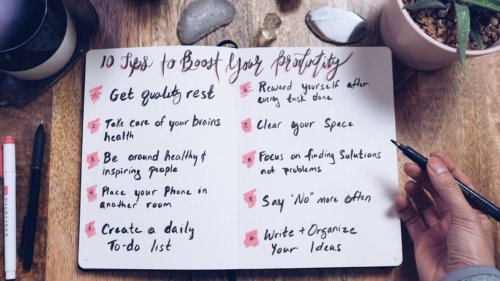 10 Tips to Boost Your Productivity
1. Get quality rest
2. Take care of your brains
health
3. Be around healthy &
inspiring people
4. Place your Phone in
another room
5. Create a daily
To-do list
6. Reward yourself after
every task done
7. Clear your Space
8. Focus on finding Solutions
not problems
9. Say "No" more often
10. Write + Organize
Your Ideas